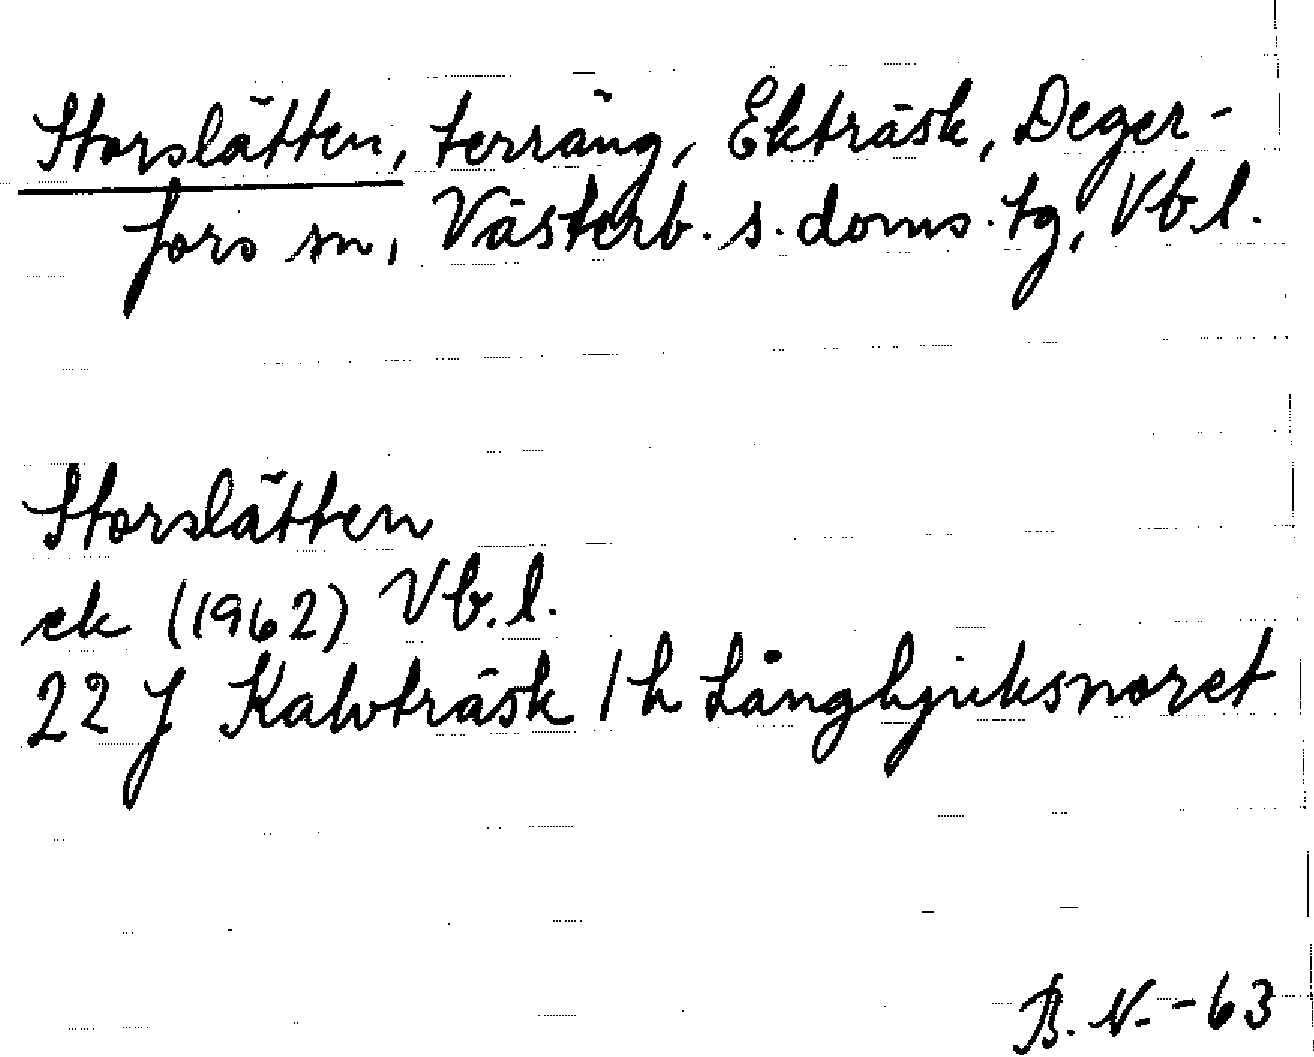 Storslätten, terräng, Ekträsk, Deger-
fors sn, Västerb. s. doms. tg, Vb. l.
Storslätten
ek (1962) Vb. l.
22 J Kalvträsk 1 h Långbjuksnoret
B. N. -63